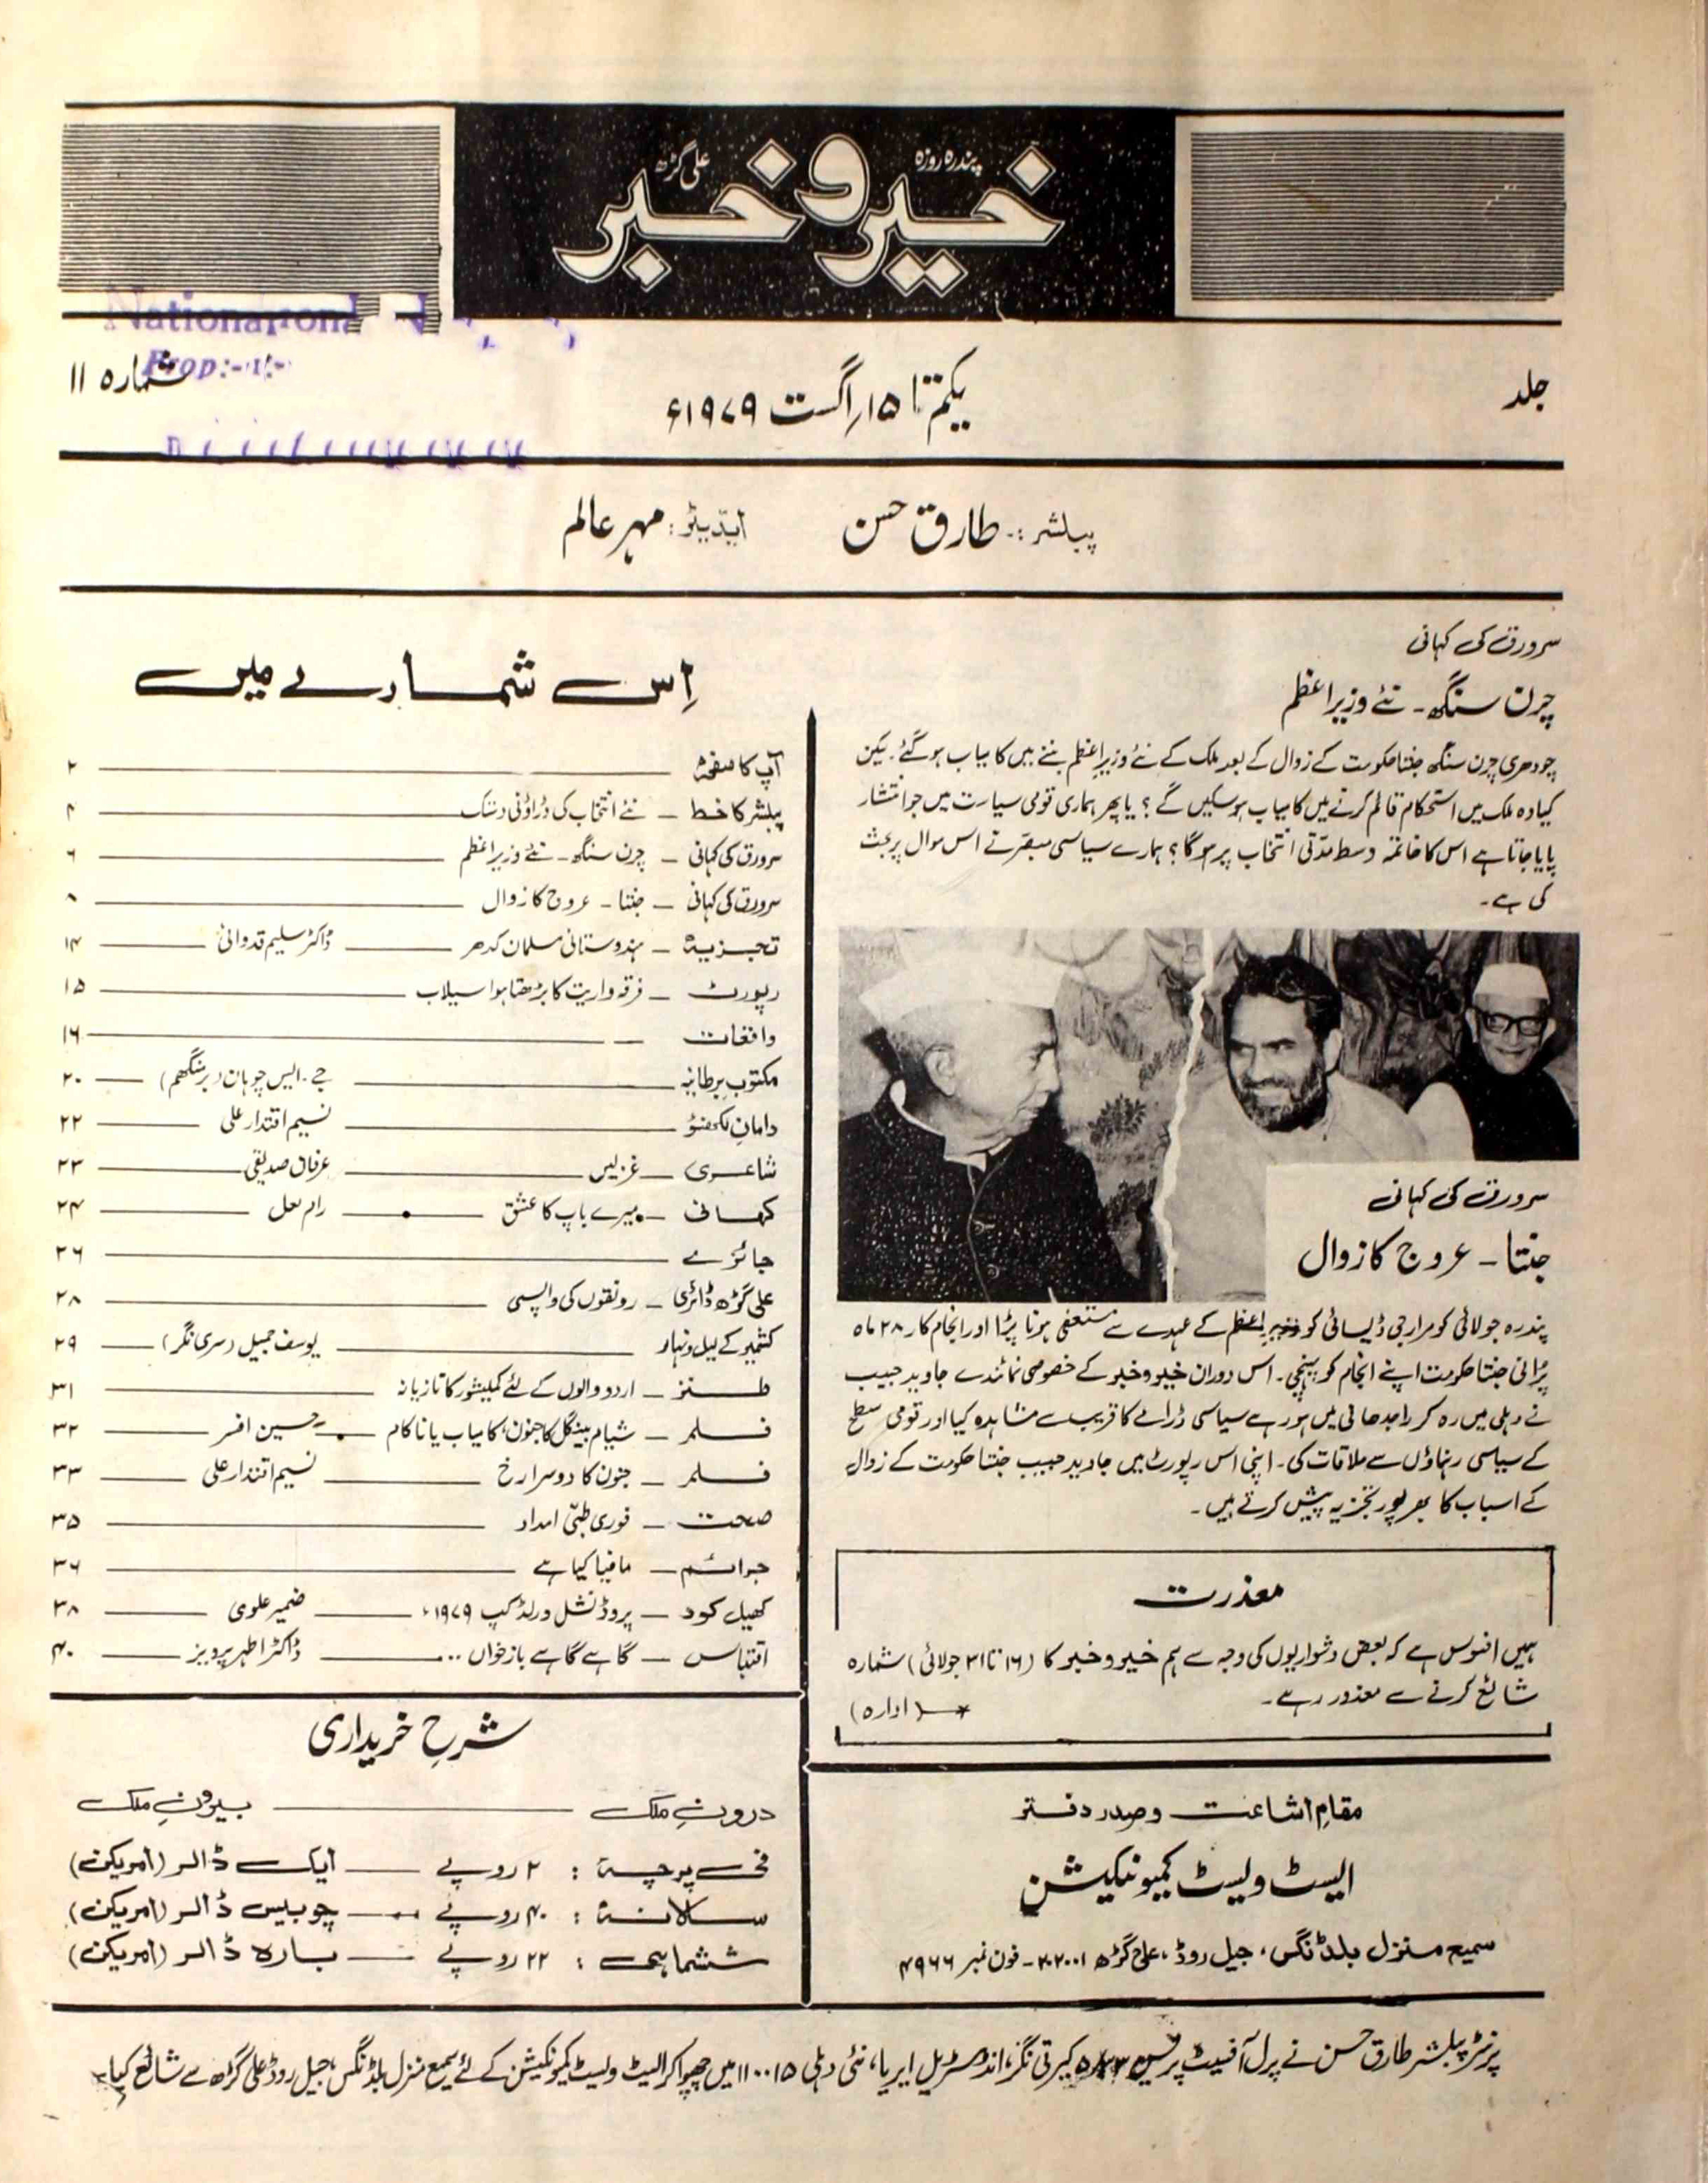 پندرہ روزہ
خیر و خبر
علی گڑھ
جلد
یکم تا ۱۵ اگست ۱۹۷۹ء
شمارہ ۱۱
National
Prop:-
پبلشر :۔ طارق حسن
ایڈیٹر : مہر عالم
سرورق کی کہانی
چرن سنگھ ۔ نئے وزیراعظم
چودھری چرن سنگھ جنتا حکومت کے زوال کے بعد ملک کے نئے وزیراعظم بننے میں کامیاب ہوگئے۔ لیکن
کیا وہ ملک میں استحکام قائم کرنے میں کامیاب ہو سکیں گے ؟ یا پھر ہماری قومی سیاست میں جو انتشار
پایا جاتا ہے اس کا خاتمہ وسط مدّتی انتخاب پر ہوگا ؟ ہمارے سیاسی مبصّر نے اس سوال پر بحث
کی ہے۔
سرورق کی کہانی
جنتا ۔ عروج کا زوال
پندرہ جولائی کو مرارجی ڈیسائی کو وزیراعظم کے عہدے سے مستعفی ہونا پڑا اور انجام کار ۲۸ ماہ
پرانی جنتا حکومت اپنے انجام کو پہنچی۔ اس دوران خیر و خبر کے خصوصی نمائندے جاوید حبیب
نے دہلی میں رہ کر راجدھانی میں ہو رہے سیاسی ڈرامے کا قریب سے مشاہدہ کیا اور قومی سطح
کے سیاسی رہناؤں سے ملاقات کی۔ اپنی اس رپورٹ میں جاوید حبیب جنتا حکومت کے زوال
کے اسباب کا بھرپور تجزیہ پیش کرتے ہیں۔
معذرت
ہمیں افسوس ہے کہ بعض دشواریوں کی وجہ سے ہم خیر و خبر کا (۱۶ تا ۳۱ جولائی) شمارہ
شائع کرنے سے معذور رہے۔
(ادارہ)
مقامِ اشاعت و صدر دفتر
ایسٹ ویسٹ کمیونیکیشن
سمیع منزل بلڈنگس، جیل روڈ، علی گڑھ ۲۰۲۰۰۱ ۔ فون نمبر ۴۹۶۶
اِس شمارے میں
آپ کا صفحہ ۲
پبلشر کا خط ۔ نئے انتخاب کی ڈراؤنی دستک ۴
سرورق کی کہانی ۔ چرن سنگھ ۔ نئے وزیراعظم ۶
سرورق کی کہانی ۔ جنتا ۔ عروج کا زوال ۸
تجزیہ ۔ ہندوستانی مسلمان کدھر ڈاکٹر سلیم قدوائی ۱۴
رپورٹ ۔ فرقہ واریت کا بڑھتا ہوا سیلاب ۱۵
واقعات ۱۶
مکتوبِ برطانیہ جے۔ ایس چوہان (برمنگھم) ۲۰
دامانِ لکھنؤ نسیم اقتدار علی ۲۲
شاعری ۔ غزلیں عرفان صدیقی ۲۳
کہانی ۔ میرے باپ کا عشق رام لعل ۲۴
جائزے ۲۶
علی گڑھ ڈائری ۔ رونقوں کی واپسی ۲۸
کشمیر کے لیل و نہار یوسف جمیل (سری نگر) ۲۹
طنز ۔ اردو والوں کے لئے کمپیشور کا تازیانہ ۳۱
فلم ۔ شیام بینگل کا جنون، کامیاب یا ناکام حسین افسر ۳۲
فلم ۔ جنون کا دوسرا رخ نسیم اقتدار علی ۳۳
صحت ۔ فوری طبّی امداد ۳۵
جرائم ۔ مافیا کیا ہے ۳۶
کھیل کود ۔ پروڈنشل ورلڈ کپ ۱۹۷۹ء ضمیر علوی ۳۸
اقتباس ۔ گاہے گاہے بازخواں ... ڈاکٹر اطہر پرویز ۴۰
شرحِ خریداری
درونِ ملک بیرونِ ملک
فی پرچہ : ۲ روپے ایک ڈالر (امریکن)
سالانہ : ۴۰ روپے چوبیس ڈالر (امریکن)
ششماہی : ۲۲ روپے بارہ ڈالر (امریکن)
پرنٹر پبلشر طارق حسن نے پرل آفسیٹ پریس ۵/۳۳ کیرتی نگر، انڈسٹریل ایریا، نئی دہلی ۱۱۰۰۱۵ میں چھپوا کر ایسٹ ویسٹ کمیونیکیشن کے لئے سمیع منزل بلڈنگس، جیل روڈ علی گڑھ سے شائع کیا۔